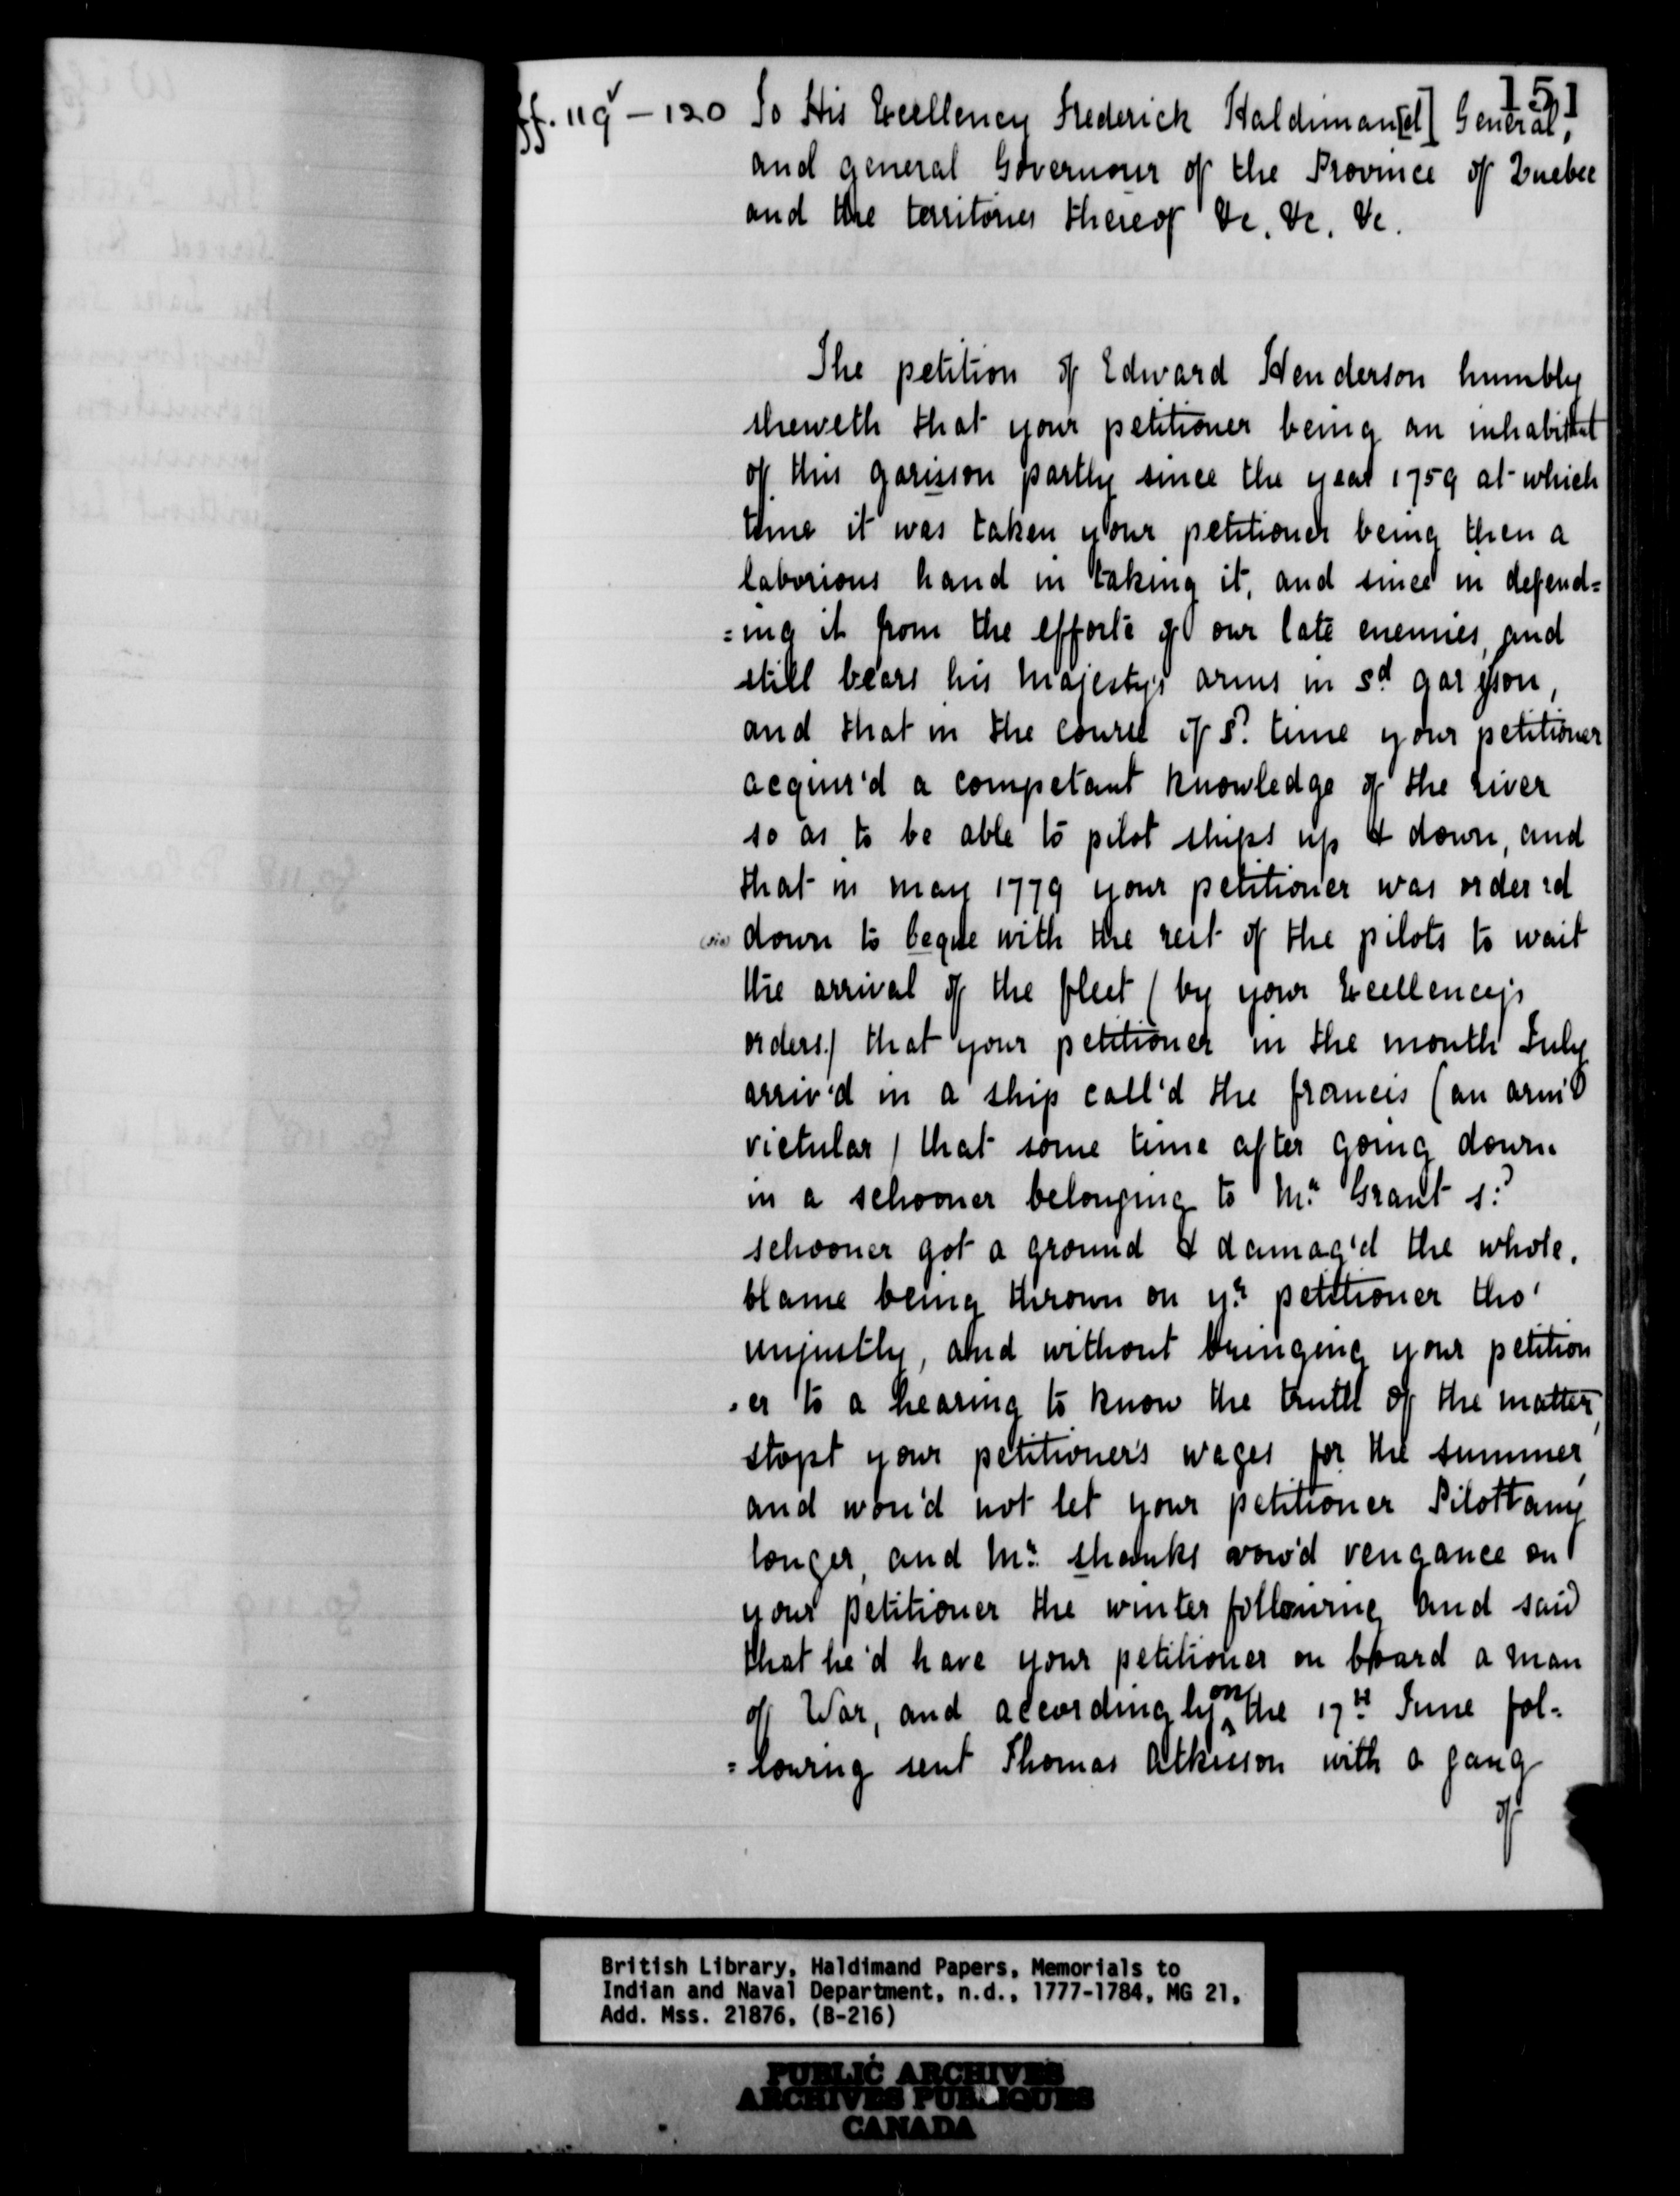 151
ff. 119v – 120 To His Excellency Frederick Haldiman[d] General,
and general Governour of the Province of Quebec
and the territories thereof &c. &c. &c.
The petition of Edward Henderson humbly
sheweth that your petitioner being an inhabittat
of this garisson partly since the year 1759 at which
time it was taken your petitioner being then a
laborious hand in taking it, and since in defend=
=ing it from the efforts of our late enemies, and
still bears his Majesty's arms in sd garisson,
and that in the course of sd. time your petitioner
acquir'd a competant knowledge of the river
so as to be able to pilot ships up & down, and
that in may 1779 your petitioner was order'd
(sic) down to beque with the rest of the pilots to wait
the arrival of the fleet (by your Excellency's
orders) that your petitioner in the month July
arriv'd in a ship call'd the francis (an arm'd
victular) that some time after going down
in a schooner belonging to Mr. Grant sd.
schooner got a ground & damag'd the whole.
blame being thrown on yr. petitioner tho'
unjustly, and without bringing your petition
-er to a hearing to know the truth of the matter,
stopt your petitioner's wages for the summer,
and wou'd not let your petitioner Pilott any
longer, and Mr. Shanks vow'd vengance on
your petitioner the winter following and said
that he'd have your petitioner on board a man
of War, and accordingly on the 17th June fol-
=lowing sent Thomas Atkisson with a gang
of
British Library, Haldimand Papers, Memorials to
Indian and Naval Department, n.d., 1777-1784, MG 21,
Add. Mss. 21876, (B-216)
PUBLIC ARCHIVES
ARCHIVES PUBLIQUES
CANADA